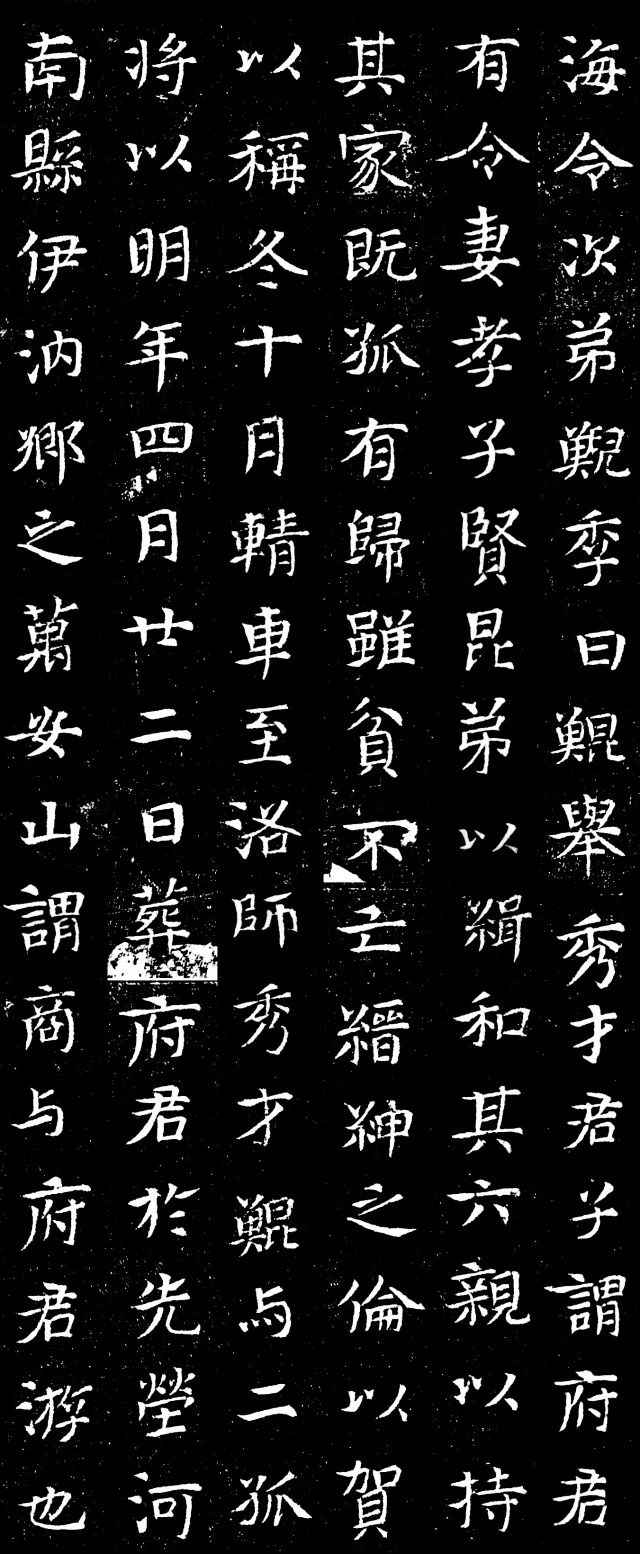 海令次弟鯢季曰鯤舉秀才君子謂府君
有令妻孝子賢昆弟以緝和其六親以持
其家既孤有歸雖貧不亡縉紳之倫以賀
以稱冬十月輤車至洛師秀才鯤与二孤
將以明年四月廿二日葬府君於先塋河
南縣伊汭鄉之萬安山謂商与府君游也